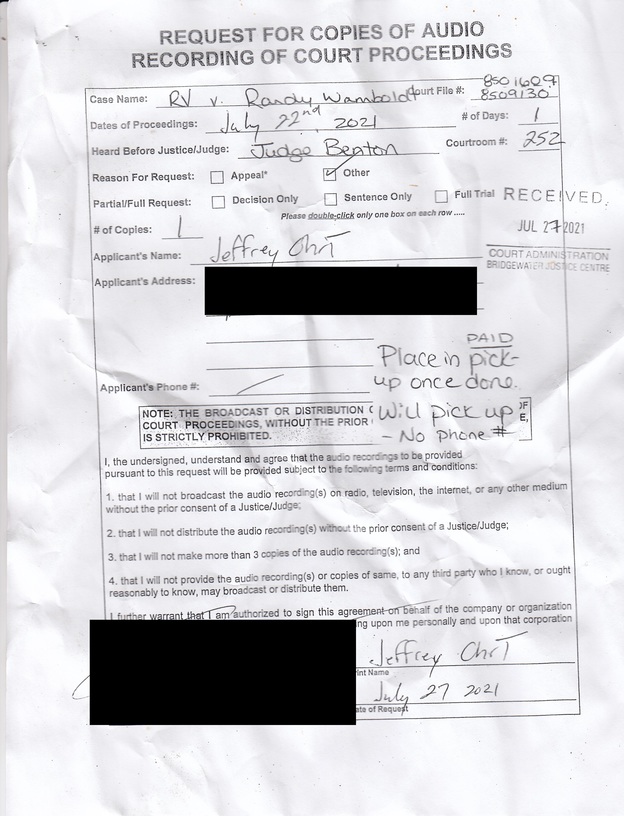 REQUEST FOR COPIES OF AUDIO
RECORDING OF COURT PROCEEDINGS
8501609
Case Name: RV v. Randy Wamboldt Court File #: 8509130
Dates of Proceedings: July 22nd, 2021 # of Days: 1
Heard Before Justice/Judge: Judge Benton Courtroom #: 252
Reason For Request: Appeal* Other
Partial/Full Request: Decision Only Sentence Only Full Trial RECEIVED
Please double-click only one box on each row .....
# of Copies: 1 JUL 27 2021
Applicant's Name: Jeffrey ChrT
COURT ADMINISTRATION
BRIDGEWATER JUSTICE CENTRE
Applicant's Address:
PAID
Place in pick-
up once done.
Applicant's Phone #:
Will pick up
- No phone #
NOTE: THE BROADCAST OR DISTRIBUTION OF
COURT PROCEEDINGS, WITHOUT THE PRIOR E,
IS STRICTLY PROHIBITED.
I, the undersigned, understand and agree that the audio recordings to be provided
pursuant to this request will be provided subject to the following terms and conditions:
1. that I will not broadcast the audio recording(s) on radio, television, the internet, or any other medium
without the prior consent of a Justice/Judge;
2. that I will not distribute the audio recording(s) without the prior consent of a Justice/Judge;
3. that I will not make more than 3 copies of the audio recording(s); and
4. that I will not provide the audio recording(s) or copies of same, to any third party who I know, or ought
reasonably to know, may broadcast or distribute them.
I further warrant that I am authorized to sign this agreement on behalf of the company or organization
ng upon me personally and upon that corporation
Jeffrey ChrT
int Name
July 27 2021
ate of Request